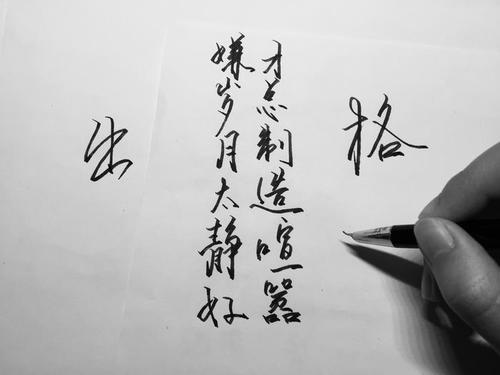 出
嫌岁月太静好
才总制造喧嚣
格